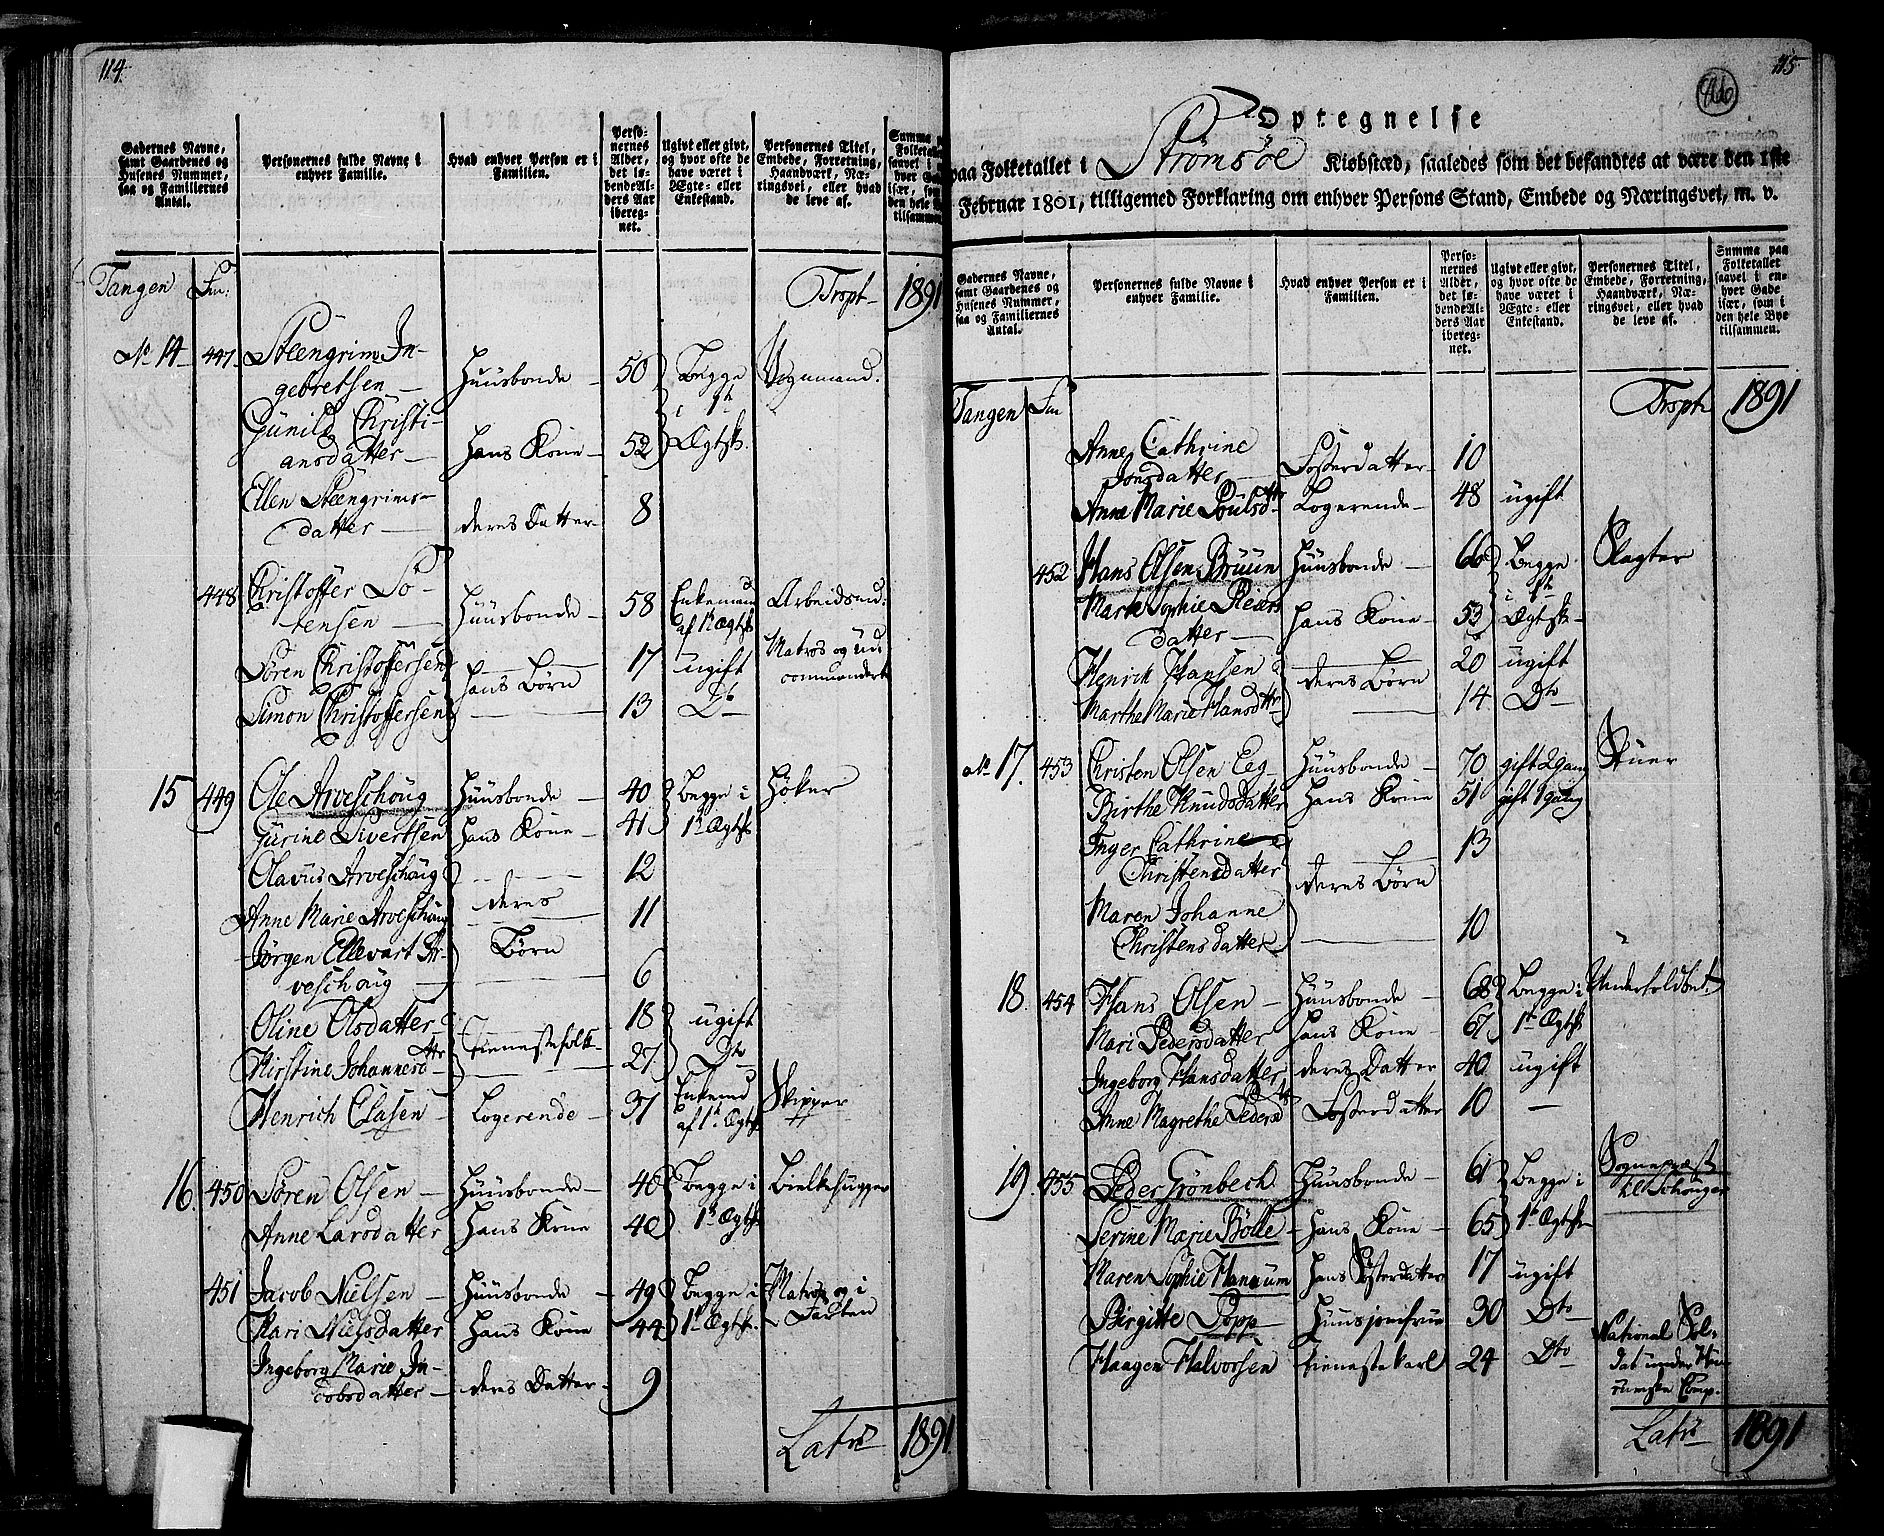 114.
Gadernes Navne, samt Gaardenes og Husenes Nummer, saa og Familiernes Antal.
Personernes fulde Navne i enhver Familie.
Hvad enhver Person er i Familien.
Personernes Alder, det løbendeAlders Aar iberegnet.
Ugivt eller givt, og hvor ofte de have været i Ægte- eller Enkestand.
Personernes Titel, Embede, Forretning, Haandværk, Næringsvei, eller hvad de leve af.
Summa paa Folketallet saavel i enhver Gade især, som i den hele Bye tilsammen.
Tangen Trspt 1891
No 14 447 Steengrim In-
gebretsen Huusbonde 50 Begge Vognmand.
Gunild Christi- i 1te
ansdatter hans Kone 52 Ægtsk.
Ellen Steengrims-
datter deres Datter 8
448 Christoffer To-
tensen Huusbonde 58 Enkemand af 1te Ægtsk Arbeidsmd:
Søren Christoffersen hans Børn 17 ugift Matros og ud-
commandert
Simon Christoffersen 13 Do
15 449 Ole Arveschoug Huusbonde 40 Begge i Høker
Gurine Sivertsen hans Kone 41 1te Ægtsk.
Olavus Arveschoug 12
Anne Marie Arveschoug deres 11
Jørgen Ellevart Ar- Børn
veschoug 6
Oline Olsdatter tienestefolk 18 ugift
Kirstine Johannesdttr 27 Do
Henrich Clasen Logerende 37 Enkemd af 1te Ægtsk Skipper
16. 450 Søren Olsen Huusbonde 48 Begge i Bielkehugger
Anne Larsdatter hans Kone 40 1te Ægtsk
451 Jacob Nielsen Huusbonde 49 Begge i Matros og i
Kari Nielsdatter hans Kone 44 1te Ægtsk. Farten
Ingeborg Marie Ja-
cobsdatter deres Datter 9
Latus 1891
115
Optegnelse
paa Folketallet i Strømsøe Kiøbstæd, saaledes som det befandtes at være den 1ste
Februar 1801, tilligemed Forklaring om enhver Persons Stand, Embede og Næringsvei, m. v.
Gadernes Navne, samt Gaardenes og Husenes Nummer, saa og Familiernes Antal.
Personernes fulde Navne i enhver Familie.
Hvad enhver Person er i Familien.
Personernes Alder, det løbendeAlders Aar iberegnet.
Ugivt eller givt, og hvor ofte de have været i Ægte- eller Enkestand.
Personernes Titel, Embede, Forretning, Haandværk, Næringsvei, eller hvad de leve af.
Summa paa Folketallet saavel i enhver Gade især, som i den hele Bye tilsammen.
Tangen Trspt 1891
Anne Cathrine
Jonsdatter Fosterdatter 10
Anne Marie Poulsdttr Logerende 48 ugift
452 Hans Olsen Bruun Huusbonde 66 Begge Slagter
i 1te
Marte Sophie Reiers
datter hans Kone 53 Ægtsk
Henrich Hansen deres Børn 20 ugift
Marthe Marie Hansdttr 14 Do
No 17. 453 Christen Olsen Eeg Huusbonde 70 gift 2 gang Stuer
Birthe Knudsdatter hans Kone 51 gift 1 gang
Inger Cathrine
Christensdatter deres Børn 13
Maren Johanne
Christensdatter 10
18. 454 Hans Olsen Huusbonde 68 Begge i Underholdbet.
Mari Pedersdatter hans Kone 67 1te Ægtsk
Ingeborg Hansdatter deres Datter 40 ugift
Anne Magrethe Pedersdttr Fosterdatter 10 —
19. 455 Peder Grønbech Huusbonde 61 Begge i Sognepræst
til Schouger
Serine Marie Bølle hans Kone 65 1te Ægtsk
Maren Sophie Hanaum hans Søsterdatter 17 ugift
Birgitte Popp Huusjomfrue 30 Do
Haagen Halvorsen tienestekarl 24 Do National Sol-
dat under
Comp.
Latus 1891